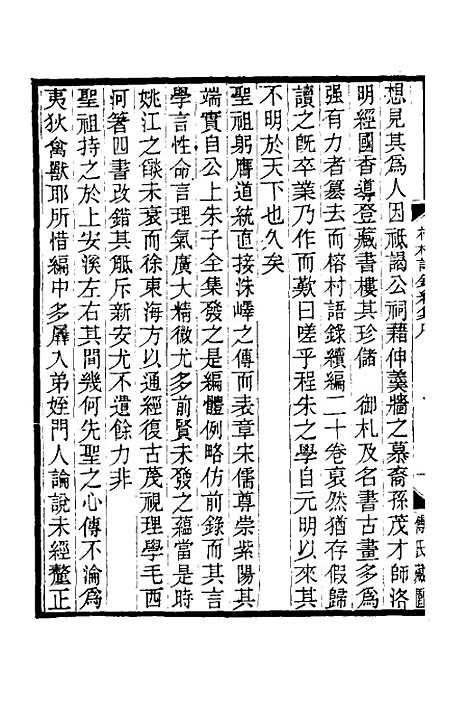 想見其爲人因祗謁公祠藉伸羹牆之慕裔孫茂才師洛
明經國香導登藏書樓其珍儲　御札及名書古畫多爲
强有力者篡去而榕村語錄續編二十卷裒然猶存假歸
讀之旣卒業乃作而歎曰嗟乎程朱之學自元明以來其
不明於天下也久矣
聖祖躬膺道統直接洙嶧之傳而表章宋儒尊崇紫陽其
端實自公上朱子全集發之是編體例略仿前錄而其言
學言性命言理氣廣大精微尤多前賢未發之蘊當是時
姚江之燄未衰而徐東海方以通經復古蔑視理學毛西
河箸四書改錯其觝斥新安尤不遺餘力非
聖祖持之於上安溪左右其間幾何先聖之心傳不淪爲
夷狄禽獸耶所惜編中多羼入弟姪門人論說未經釐正
傅氏藏園